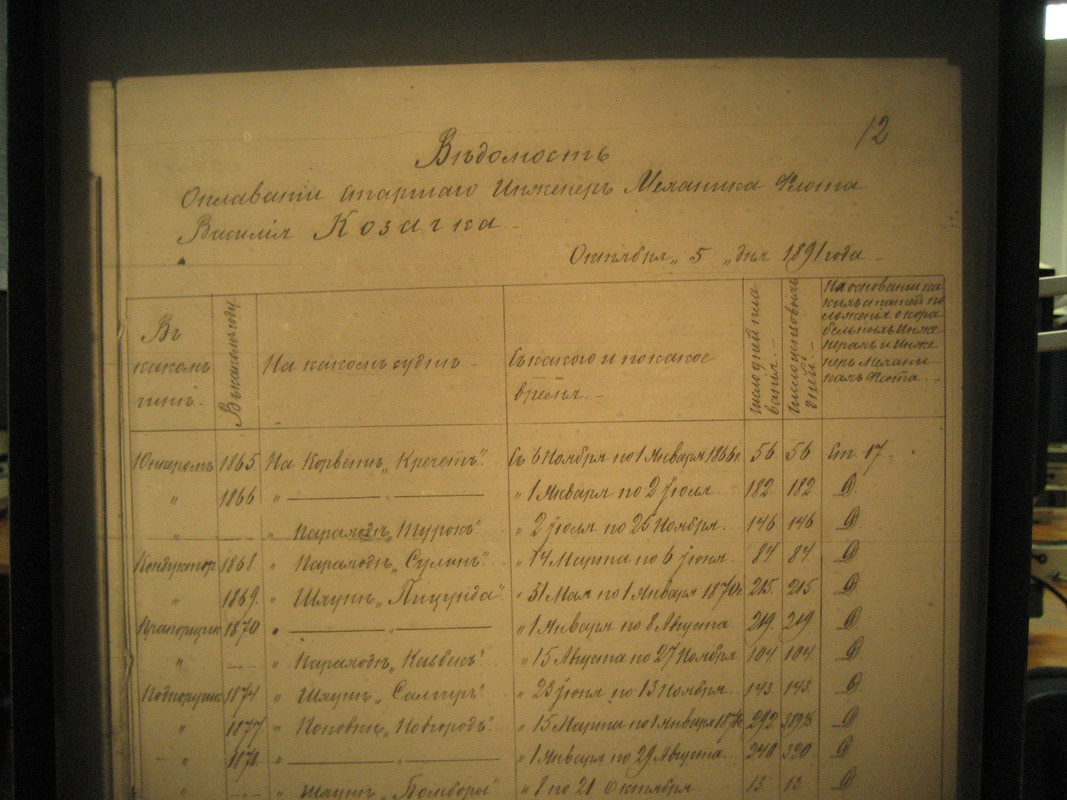 12
Вѣдомость
О плаваніи Старшаго Инженеръ Механика Флота
Василія Козачка
Октября „ 5 „ дня 1891 года
Въ какомъ чинѣ.
Въ какомъ году
На какомъ суднѣ
Съ какого и по какое время.
Число дней плаванія.
Число цензовыхъ дней.
На основаніи ка
кихъ статей по
ложенія о кора
бельныхъ Инже
нерахъ и Инже
неръ Механи
кахъ Флота
Юнкеромъ 1865 На Корветѣ „Кречетъ“. Съ 6 Ноября по 1 Января 1866 г. 56 56 Ст. 17.
„ 1866 „ „ „ 1 Января по 2 Іюля 182 182 D
„ „ Пароходѣ „Турокъ“. „ 2 Іюля по 25 Ноября 146 146 D
Кондуктор 1868 „ Пароходѣ „Сулинъ“. „ 14 Марта по 6 Іюня 84 84 D
„ 1869. „ Шкунѣ „Пицунда“ „ 31 Мая по 1 Января 1870 г. 215 215 D
Прапорщик 1870 „ „ „ 1 Января по 8 Августа 219 219 D
„ „ Пароходѣ „Казбекъ“. „ 15 Августа по 27 Ноября 104 104 D
Подпоручик 1874 „ Шкунѣ „Салгиръ“. „ 23 Іюня по 13 Ноября 143 143 D
„ 1877 „ Поповкѣ „Новгородъ“. „ 15 Марта по 1 Января 1878 292 D
„ 1878 „ „ „ 1 Января по 29 Августа 240 320 D
„ „ Шкунѣ „Бомборы“ „ 8 по 21 Октября 13 13 D